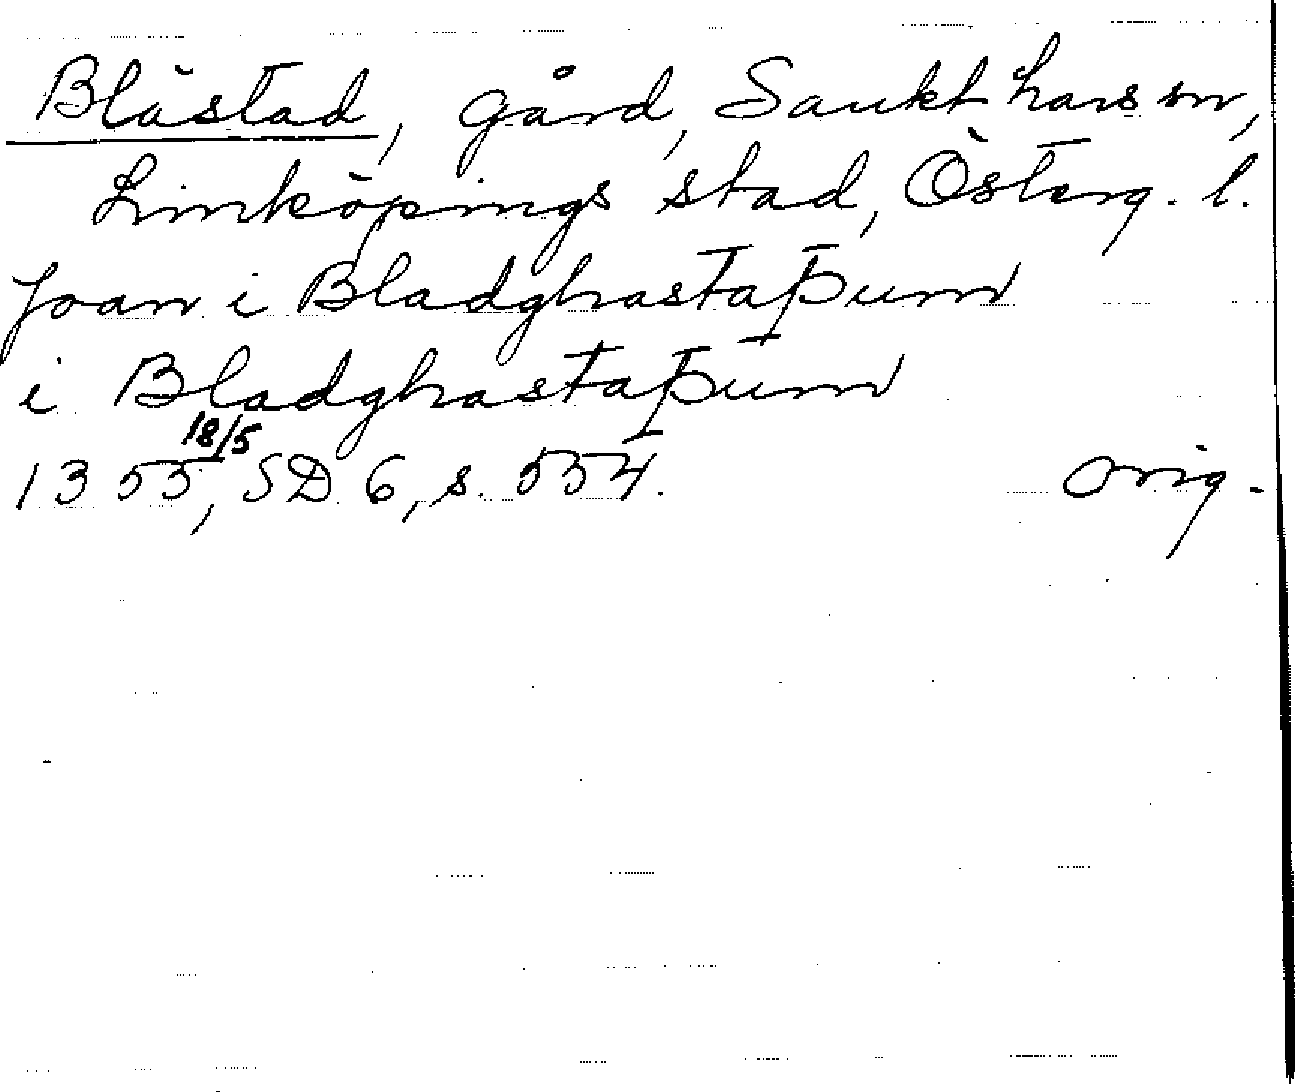 Blåstad, gård, Sankt Lars sn,
Linköpings stad, Österg. l.
Joan i Bladghastaþum
i Bladghastaþum
18/5
1355, SD 6, s. 554. orig.